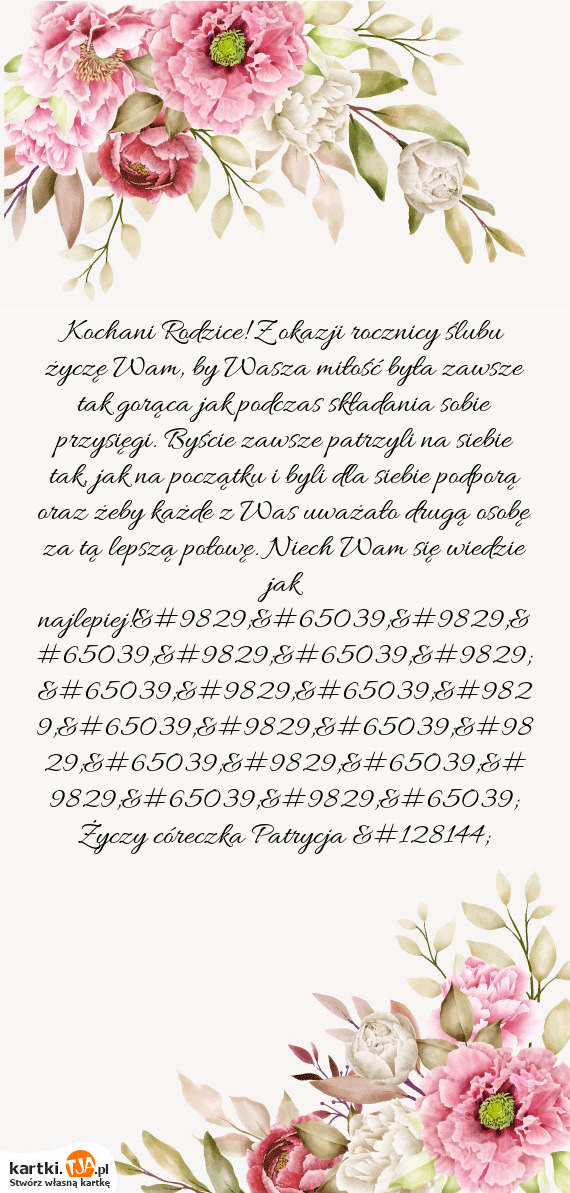 Kochani Rodzice! Z okazji rocznicy ślubu
życzę Wam, by Wasza miłość była zawsze
tak gorąca jak podczas składania sobie
przysięgi. Byście zawsze patrzyli na siebie
tak, jak na początku i byli dla siebie podporą
oraz żeby każde z Was uważało drugą osobę
za tą lepszą połowę. Niech Wam się wiedzie
jak
najlepiej!&#9829;&#65039;&#9829;&
#65039;&#9829;&#65039;&#9829;
&#65039;&#9829;&#65039;&#982
9;&#65039;&#9829;&#65039;&#98
29;&#65039;&#9829;&#65039;&#
9829;&#65039;&#9829;&#65039;
Życzy córeczka Patrycja &#128144;
kartki.TJA.pl
Stwórz własną kartkę